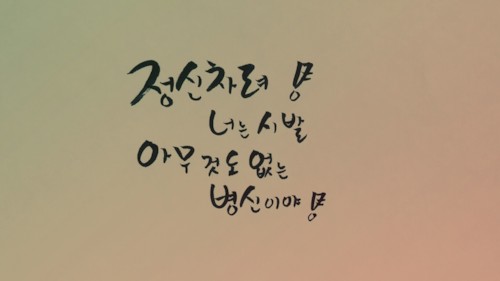 정신차려!
너는 시발
아무것도 없는
병신이야!